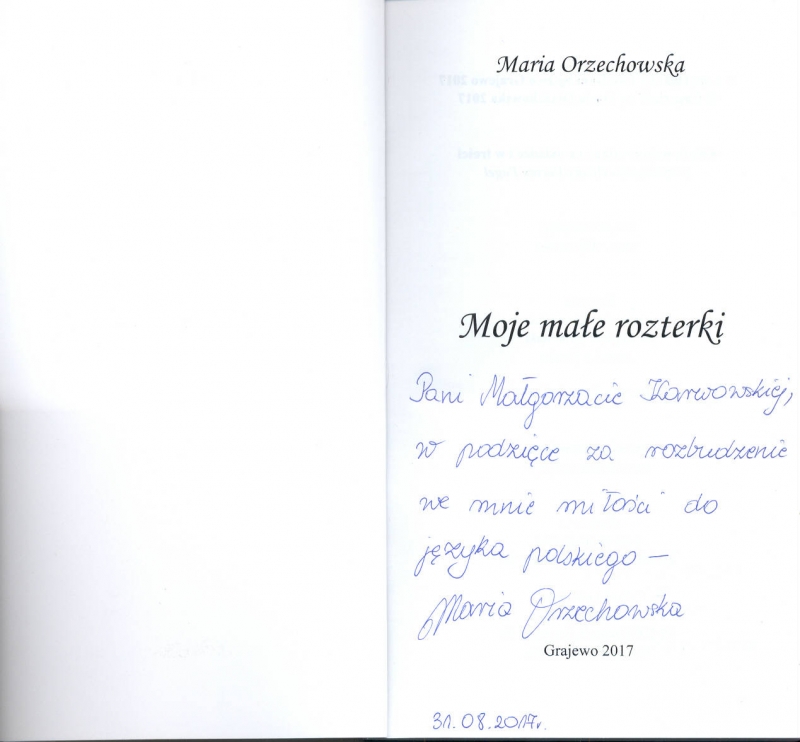 Maria Orzechowska
Moje małe rozterki
Pani Małgorzacie Karwowskiej,
w podzięce za rozbudzenie
we mnie miłości do
języka polskiego —
Maria Orzechowska
Grajewo 2017
31.08.2017r.